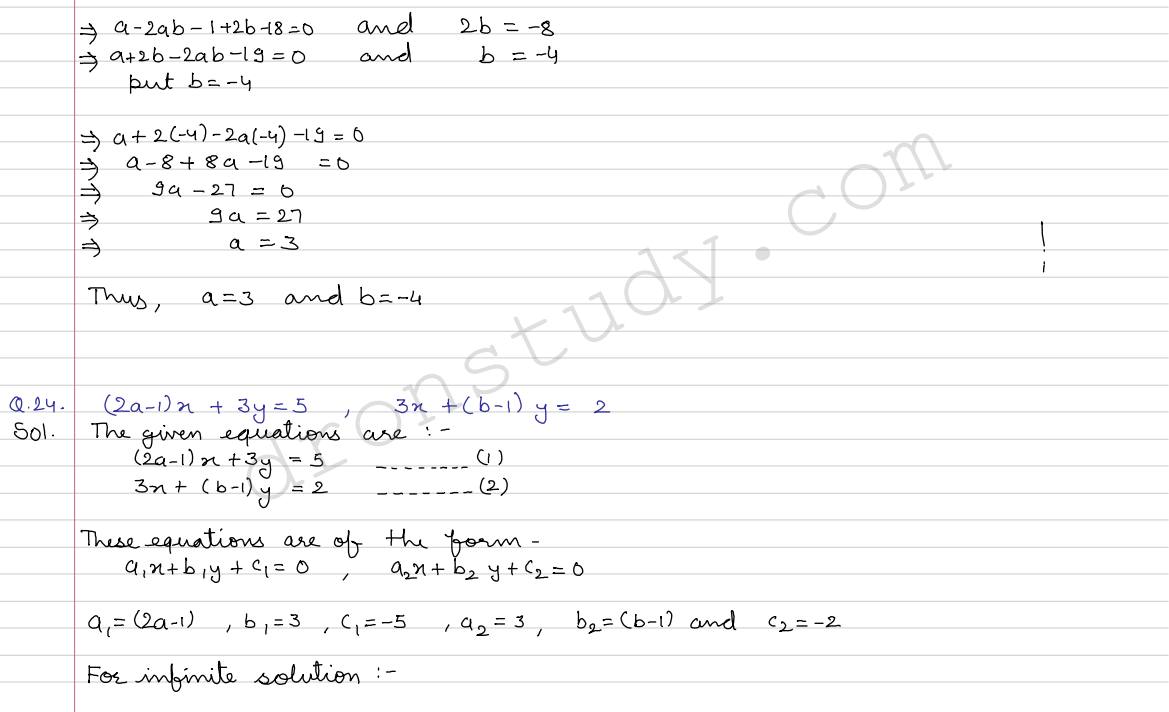 ⇒ a-2ab-1+2b-18=0 and 2b = -8
⇒ a+2b-2ab-19=0 and b = -4
put b=-4
⇒ a+2(-4)-2a(-4)-19=0
⇒ a-8+8a-19 =0
⇒ 9a-27 = 0
⇒ 9a = 27
⇒ a = 3
Thus, a=3 and b=-4
Q.24. (2a-1)x + 3y=5 , 3x +(b-1) y = 2
Sol. The given equations are :-
(2a-1)x+3y = 5 --------(1)
3x+ (b-1)y = 2 -------(2)
These equations are of the form -
a₁x+b₁y+c₁=0 , a₂x+b₂y+c₂=0
a₁=(2a-1) , b₁=3 , c₁=-5 , a₂=3, b₂=(b-1) and c₂=-2
For infinite solution :-
dronstudy.com